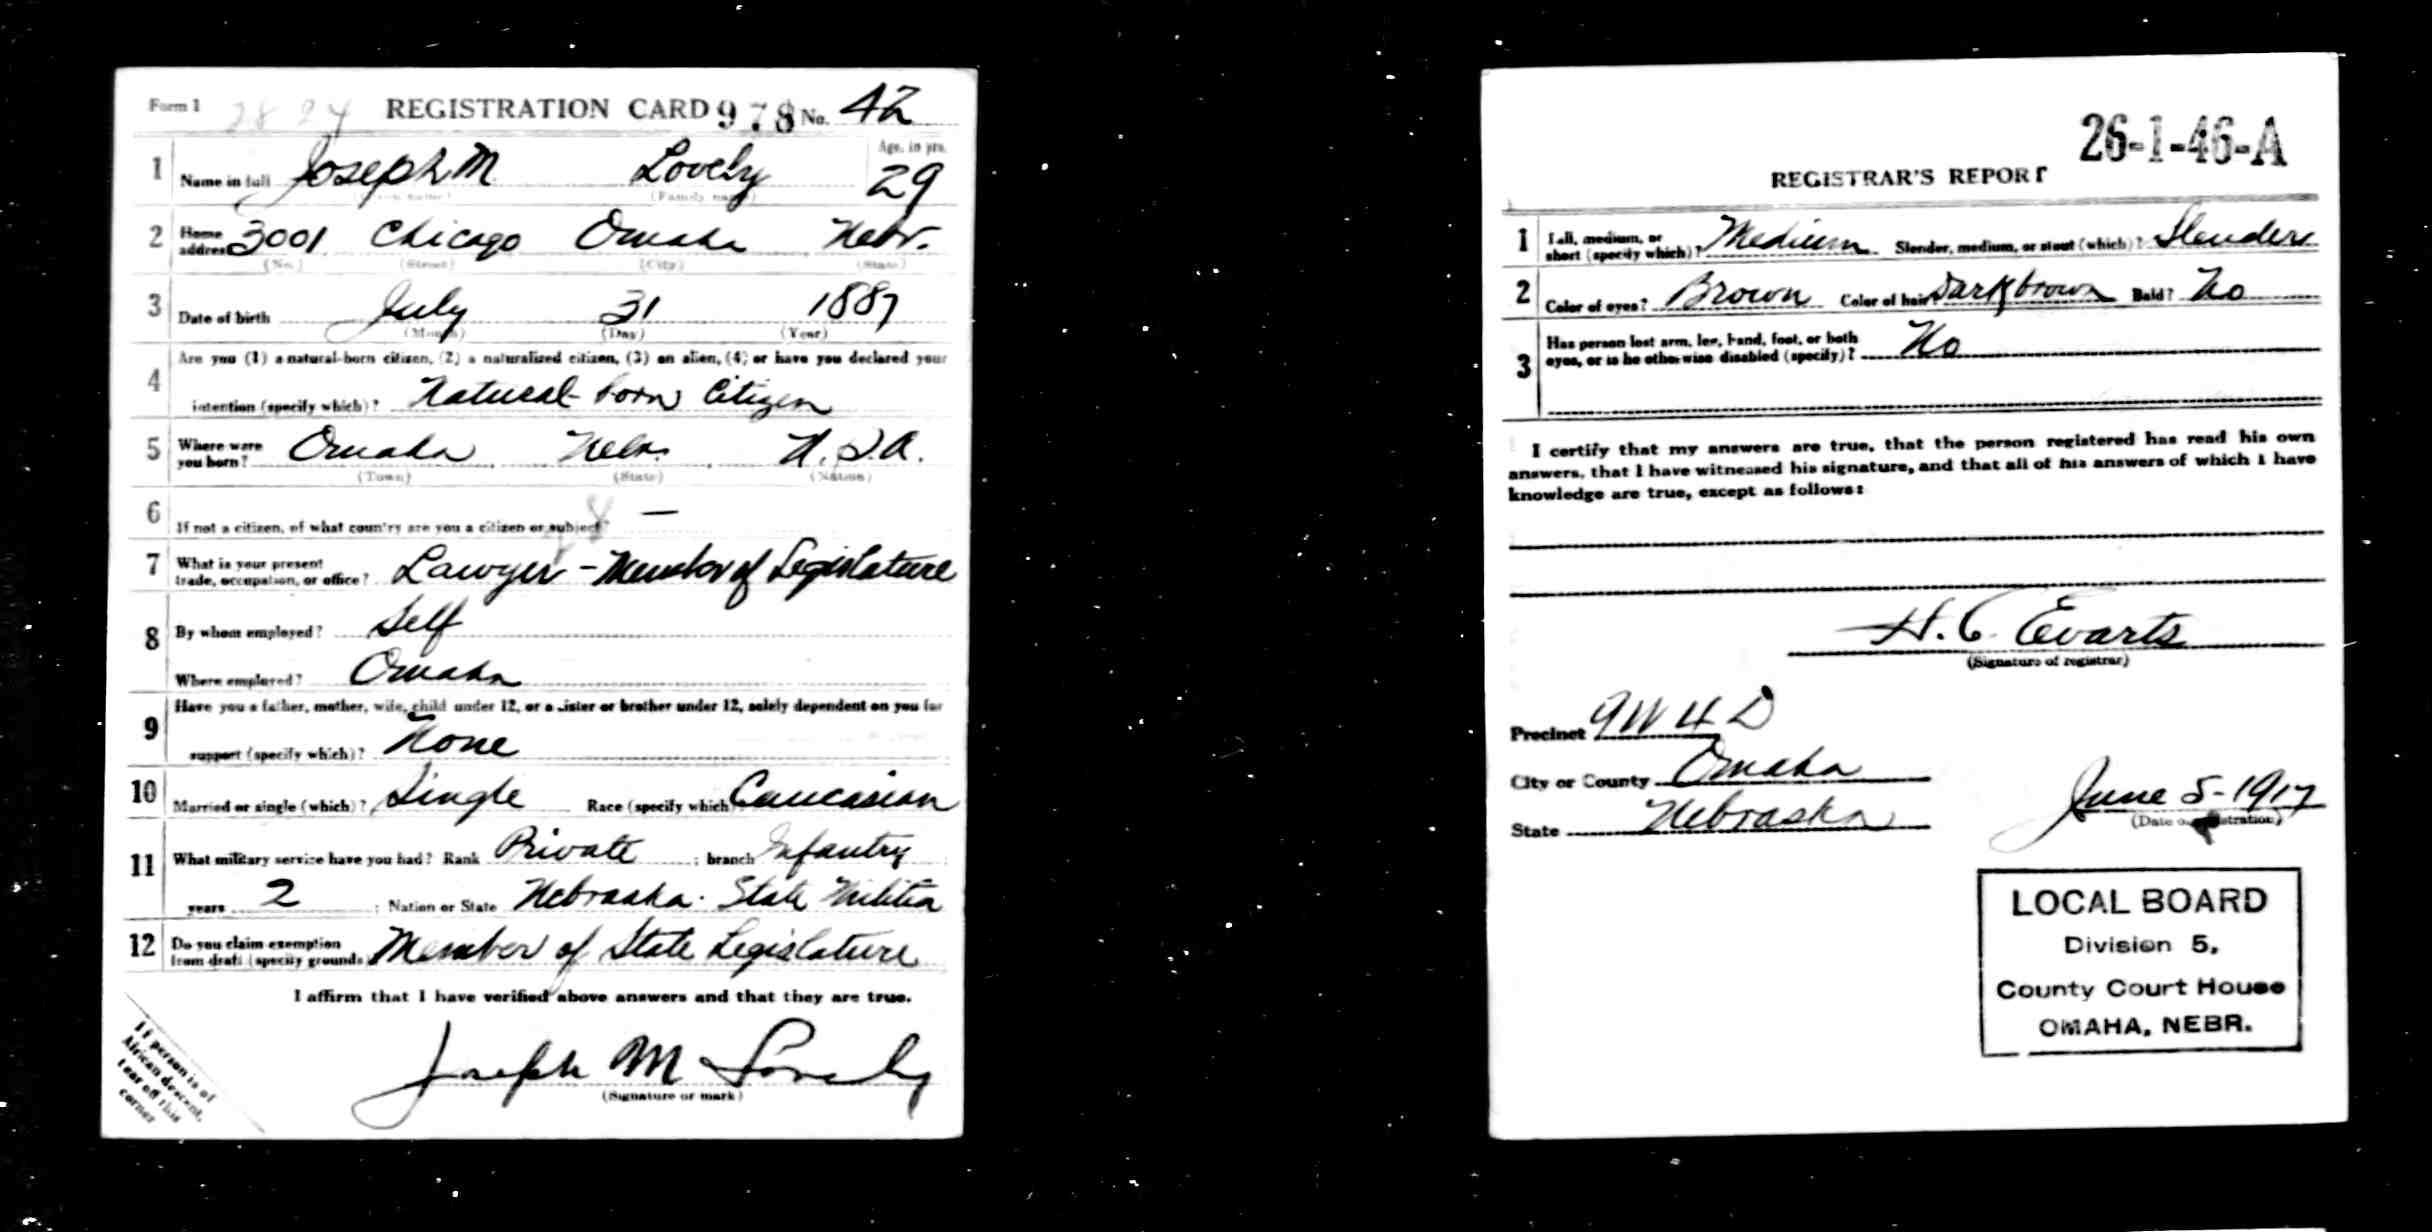 Form 1 28 24 REGISTRATION CARD 978 No. 42
1 Name in full Joseph M Lovely Age, in yrs. 29
(Given name) (Family name)
2 Home address 3001 Chicago Omaha Nebr.
(No.) (Street) (City) (State)
3 Date of birth July 31 1887
(Month) (Day) (Year)
Are you (1) a natural-born citizen, (2) a naturalized citizen, (3) an alien, (4) or have you declared your
4 intention (specify which)? Natural-born Citizen
5 Where were you born? Omaha Nebr. U.S.A.
(Town) (State) (Nation)
6 If not a citizen, of what country are you a citizen or subject? —
7 What is your present trade, occupation, or office? Lawyer - Member of Legislature
8 By whom employed? Self
Where employed? Omaha
9 Have you a father, mother, wife, child under 12, or a sister or brother under 12, solely dependent on you for
support (specify which)? None
10 Married or single (which)? Single Race (specify which) Caucasian
11 What military service have you had? Rank Private ; branch Infantry
years 2 ; Nation or State Nebraska. State Militia
12 Do you claim exemption from draft (specify grounds) Member of State Legislature
I affirm that I have verified above answers and that they are true.
Joseph M Lovely
(Signature or mark)
If person is of
African descent,
tear off this
corner
26-1-46-A
REGISTRAR'S REPORT
1 Tall, medium, or short (specify which)? Medium Slender, medium, or stout (which)? Slender
2 Color of eyes? Brown Color of hair Dark brown Bald? No
3 Has person lost arm, leg, hand, foot, or both
eyes, or is he otherwise disabled (specify)? No
I certify that my answers are true, that the person registered has read his own
answers, that I have witnessed his signature, and that all of his answers of which I have
knowledge are true, except as follows:
H. C. Evarts
(Signature of registrar)
Precinct 9W 4 D
City or County Omaha
State Nebraska
June 5-1917
(Date of registration)
LOCAL BOARD
Division 5,
County Court House
OMAHA, NEBR.